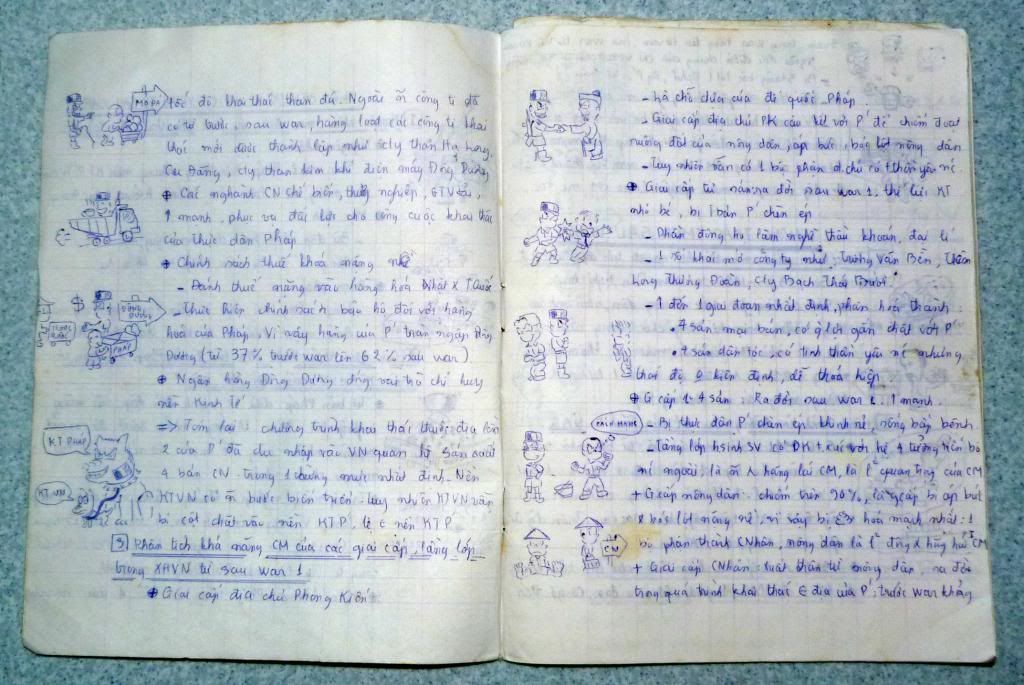 MỎ THAN
tốc độ khai thác than đá. Ngoài công ti đã
có từ trước, sau war, hàng loạt các công ti khai
thác mới được thành lập như cty than Hạ Long,
cty than kim khí điện máy Đông Dương
+ Các nghành CN chế biến, GTVT,
↑ mạnh, phục vụ đắc lực cho công cuộc khai thác
của thực dân Pháp
+ Chính sách thuế khoá nặng nề
- Đánh thuế nặng vào hàng hoá Nhật & TQuốc
$
ĐÔNG DƯƠNG
PHÁP
- Thực hiện chính sách bảo hộ đối với hàng
hoá của Pháp. Vì vậy hàng của P' tràn ngập Đông
Dương (từ 37% trước war lên 62% sau war)
+ Ngân hàng Đông Dương đóng vai trò chỉ huy
nền Kinh Tế
KT PHÁP
KT VN
=> Tóm lại: chương trình khai thác thuộc địa lần
2 của P' đã du nhập vào VN quan hệ sản xuất
tư bản CN trong 1 chừng mực nhất định. Nền
KTVN có bước biến triển. Tuy nhiên KTVN vẫn
bị cột chặt vào nền KTP', lệ ∈ nền KTP'
3 Phân tích khả năng CM của các giai cấp, tầng lớp
trong XHVN từ sau war 1
+ Giai cấp địa chủ Phong Kiến
- Là chỗ dựa của đế quốc Pháp.
- Giai cấp địa chủ PK câu kết với P' để chiếm đoạt
ruộng đất của nông dân, áp bức, bóc lột nông dân
- Tuy nhiên vẫn có 1 bộ phận đ.chủ có t thần yêu nc
+ Giai cấp tư sản: ra đời sau war 1, thế lực KT
nhỏ bé, bị tbản P' chèn ép
- Phần đông họ làm nghề thầu khoán, đại lí
- 1 số khai mở công ty như: Trương Văn Bền, Tiên
Long Thương Đoàn, cty Bạch Thái Bưởi
- 1 đến 1 giai đoạn nhất định, phân hoá thành:
. 4 sản mại bán, có q lợi gắn chặt với P'
. 4 sản dân tộc, có tinh thần yêu nc nhưng
thái độ 0 kiên định, dễ thoả hiệp
+ G cấp t- 4 sản: Ra đời sau war 1. ↑ mạnh.
- Bị thực dân P' chèn ép, khinh rẻ, sống bấp bênh.
- Tầng lớp hsinh SV có ĐK t xúc với hệ 4 tưởng tiến bộ
nc ngoài, là hăng hái CM, là l² quan trọng của CM
+ G cấp nông dân: chiếm trên 90%, là g cấp bị áp bức
& bóc lột nặng nề, vì vậy bị hoá mạnh nhất: 1
bộ phận thành CNhân, nông dân là l² đông & hăng hái CM
CM
+ Giai cấp CNhân: xuất thân từ nông dân, ra đời
trong quá trình khai thác ∈ địa của P', trước war khoảng